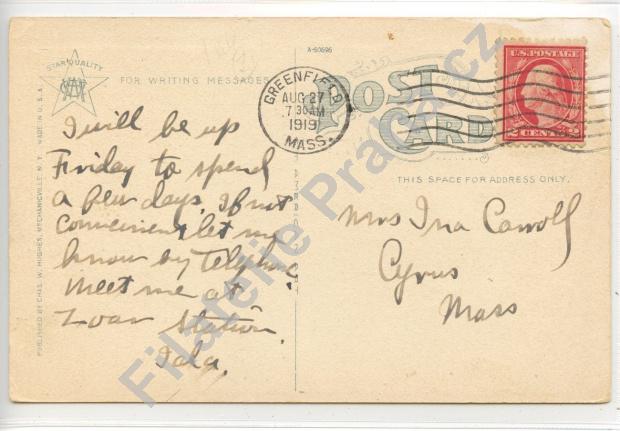 A-60696
STAR QUALITY
FOR WRITING MESSAGES
POST
CARD
GREENFIELD
AUG 27
7 30 AM
1919
MASS.
U.S. POSTAGE
2 CENTS 2
THIS SPACE FOR ADDRESS ONLY.
I will be up
Friday to spend
a few days, If not
convenient let me
know by Telephone
meet me at
Zoar Station.
Mrs Ina Carroll
Cyrus
Mass
PUBLISHED BY CHAS. W. HUGHES, MECHANICVILLE, N. Y. MADE IN U.S.A.
Filatelie Praha.cz